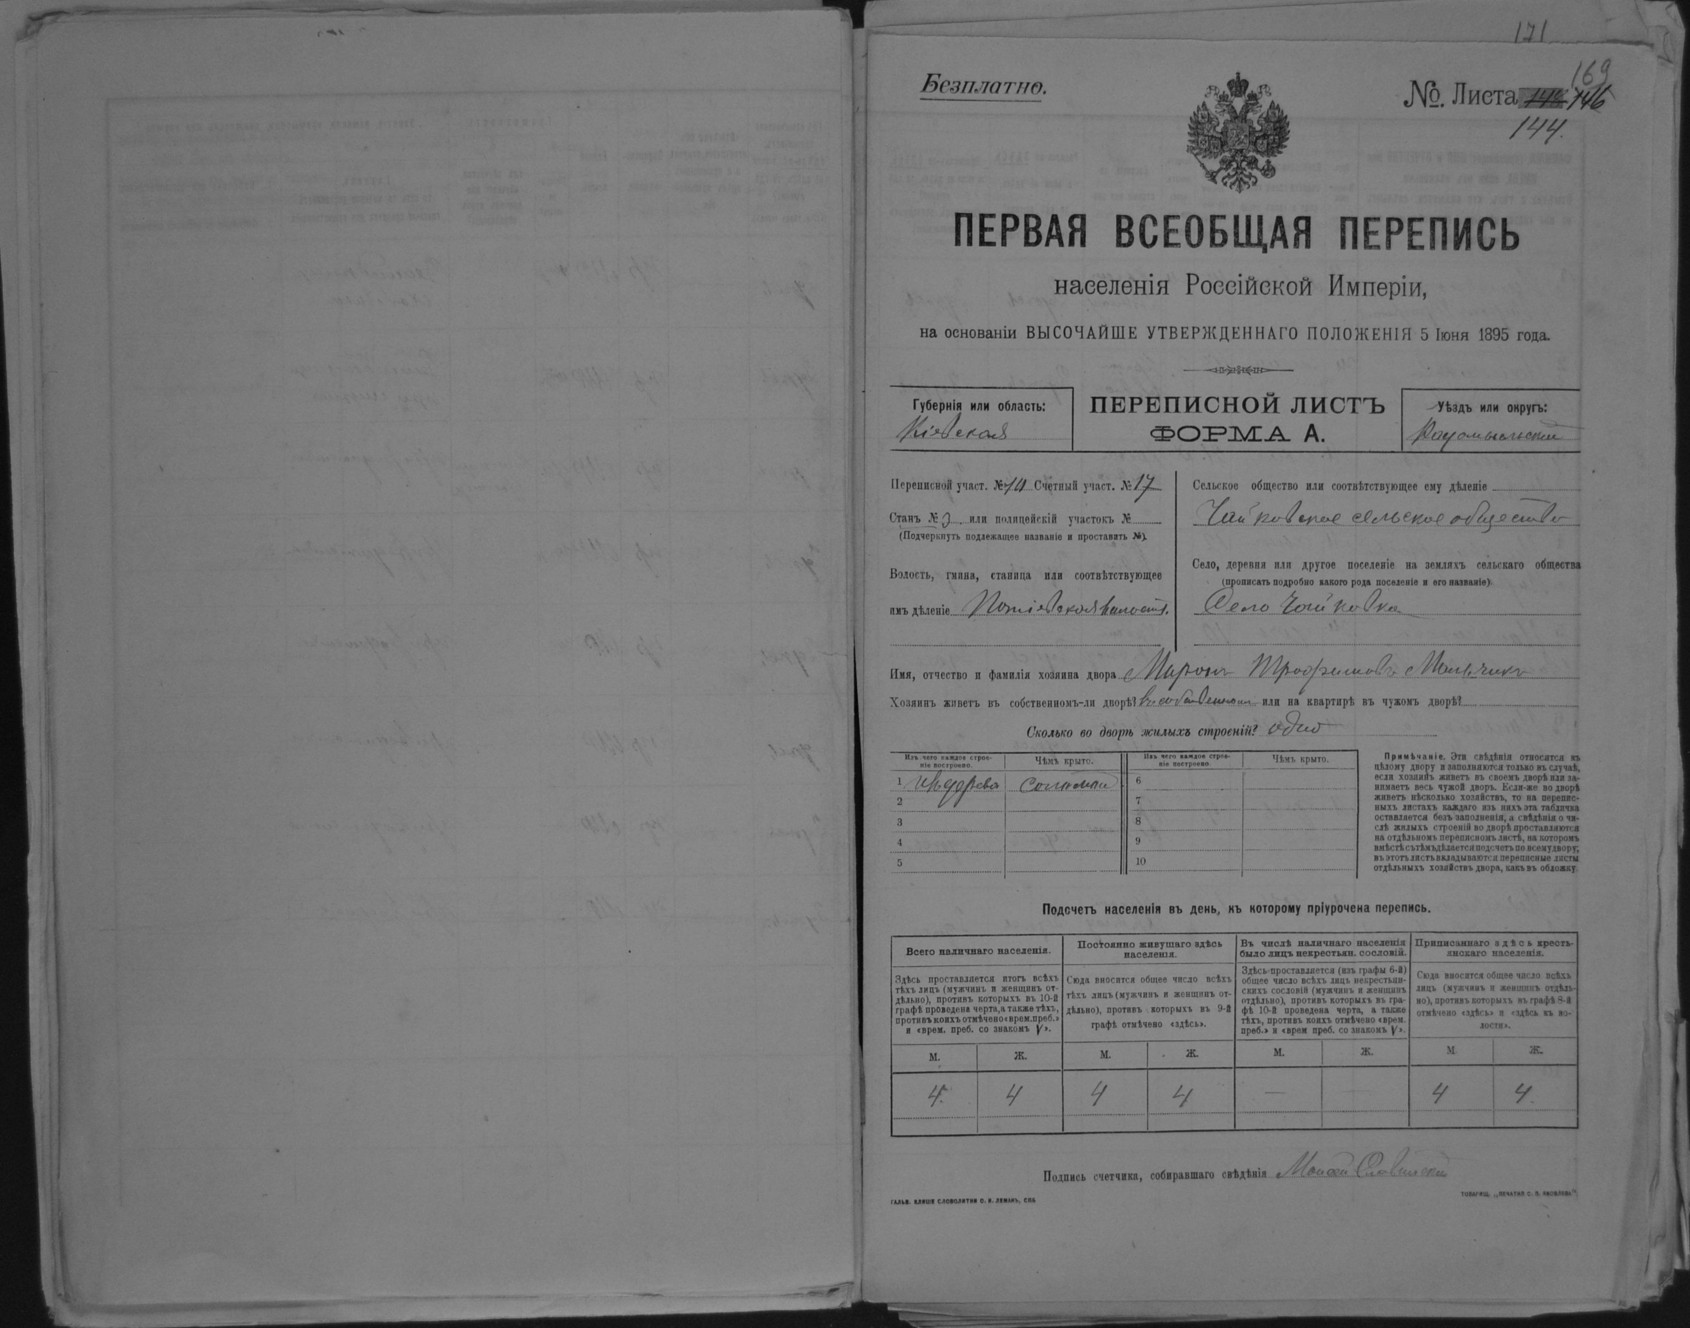 171
Безплатно.
№ Листа 146
169
144.
ПЕРВАЯ ВСЕОБЩАЯ ПЕРЕПИСЬ
населенія Россійской Имперіи,
на основаніи ВЫСОЧАЙШЕ УТВЕРЖДЕННАГО ПОЛОЖЕНІЯ 5 Іюня 1895 года.
Губернія или область:
Кіевская
ПЕРЕПИСНОЙ ЛИСТЪ
ФОРМА А.
Уѣздъ или округъ:
Радомысльскій
Переписной участ. № Счетный участ. № 17
Станъ № 3 или полицейскій участокъ №
(Подчеркнуть подлежащее названіе и проставить №).
Волость, гмина, станица или соотвѣтствующее
имъ дѣленіе Потіевская волость.
Сельское общество или соотвѣтствующее ему дѣленіе
Чайковское сельское общество
Село, деревня или другое поселеніе на земляхъ сельскаго общества
(прописать подробно какого рода поселеніе и его названіе)
Село Чайковка
Имя, отчество и фамилія хозяина двора Миронъ Трофимовъ
Хозяинъ живетъ въ собственномъ-ли дворѣ? или на квартирѣ въ чужомъ дворѣ?
Сколько во дворѣ жилыхъ строеній? одно
Изъ чего каждое строеніе построено.
Чѣмъ крыто.
Изъ чего каждое строеніе построено.
Чѣмъ крыто.
1 изъ дерева соломой 6
2 7
3 8
4 9
5 10
Примѣчаніе. Эти свѣдѣнія относятся къ
цѣлому двору и заполняются только въ случаѣ,
если хозяинъ живетъ въ своемъ дворѣ или за-
нимаетъ весь чужой дворъ. Если-же во дворѣ
живетъ нѣсколько хозяйствъ, то на перепис-
ныхъ листахъ каждаго изъ нихъ эта табличка
оставляется безъ заполненія, а свѣдѣнія о чи-
слѣ жилыхъ строеній во дворѣ проставляются
на отдѣльномъ переписномъ листѣ, на которомъ
вмѣстѣ съ тѣмъ дѣлается подсчетъ по всему двору;
въ этотъ листъ вкладываются переписные листы
отдѣльныхъ хозяйствъ двора, какъ въ обложку.
Подсчетъ населенія въ день, къ которому пріурочена перепись.
Всего наличнаго населенія.
Здѣсь проставляется итогъ всѣхъ
тѣхъ лицъ (мужчинъ и женщинъ от-
дѣльно), противъ которыхъ въ 10-й
графѣ проведена черта, а также тѣхъ,
противъ коихъ отмѣчено «врем. преб.»
и «врем. преб. со знакомъ V».
Постоянно живущаго здѣсь
населенія.
Сюда вносится общее число всѣхъ
тѣхъ лицъ (мужчинъ и женщинъ от-
дѣльно), противъ которыхъ въ 9-й
графѣ отмѣчено «здѣсь».
Въ числѣ наличнаго населенія
было лицъ некрестьян. сословій.
Здѣсь проставляется (изъ графы 6-й)
общее число всѣхъ лицъ некрестьян-
скихъ сословій (мужчинъ и женщинъ
отдѣльно), противъ которыхъ въ гра-
фѣ 10-й проведена черта, а также
тѣхъ, противъ коихъ отмѣчено «врем.
преб.» и «врем преб. со знакомъ V».
Приписаннаго здѣсь кресть-
янскаго населенія.
Сюда вносится общее число всѣхъ
лицъ (мужчинъ и женщинъ отдѣль-
но), противъ которыхъ въ графѣ 8-й
отмѣчено «здѣсь» и «здѣсь въ во-
лости».
М. Ж. М. Ж. М. Ж. М. Ж.
4. 4 4 4 — — 4 4.
Подпись счетчика, собиравшаго свѣдѣнія
ГАЛЬВ. КЛИШЕ СЛОВОЛИТНИ О. И. ЛЕМАНЪ, СПБ
ТОВАРИЩ. „ПЕЧАТНЯ С. П. ЯКОВЛЕВА"